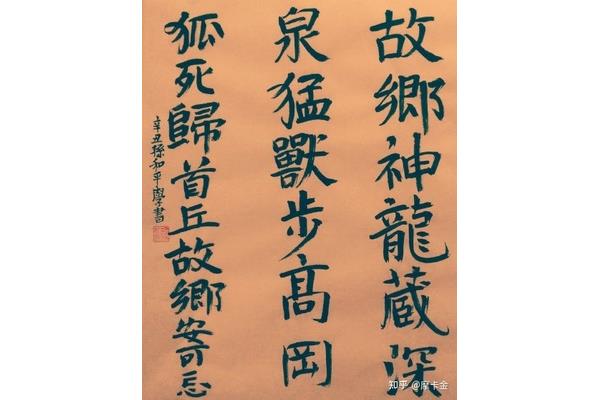 故鄉神龍蔵深
泉猛獸步髙岡
狐死歸首丘故鄉安可忘
辛丑孫和平學書
知乎 @摩卡金